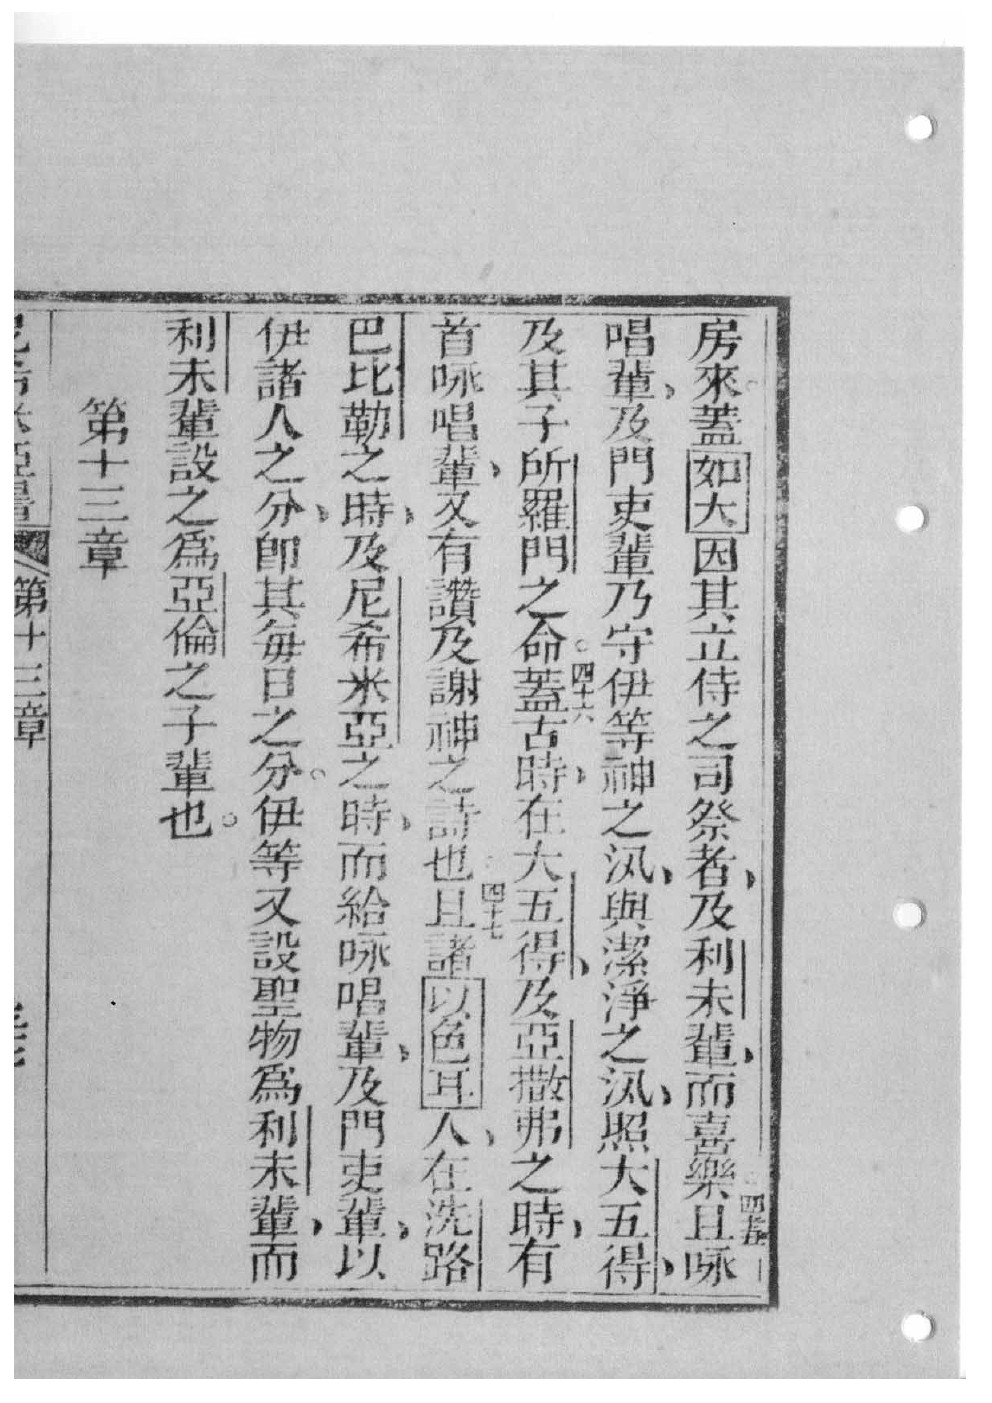 房來。蓋如大因其立侍之司祭者、及利未輩、而喜樂。四十五且咏
唱輩、及門吏輩乃守伊等神之汛、與潔淨之汛、照大五得、
及其子所羅門之命。四十六蓋古時、在大五得、及亞撒弗之時、有
首咏唱輩、又有讚及謝神之詩也。四十七且諸以色耳人、在洗路
巴比勒之時、及尼希米亞之時、而給咏唱輩、及門吏輩、以
伊諸人之分、即其每日之分。伊等又設聖物爲利未輩、而
利未輩設之爲亞倫之子輩也。
第十三章
尼希米亞書 第十三章